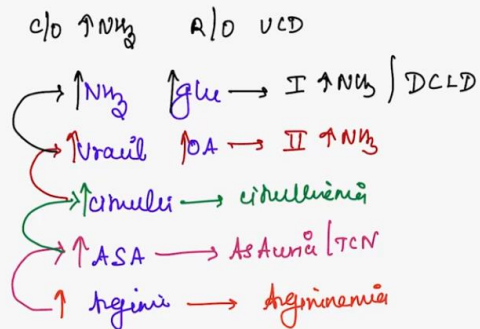 C/O ↑NH3 R/O UCD
↑NH3 ↑Glu → I ↑NH3 / DCLD
↑Uracil ↑OA → II ↑NH3
↑Citrulli → citrullinemia
↑ASA → AsAuria / TCN
↑ Arginin → Argininemia